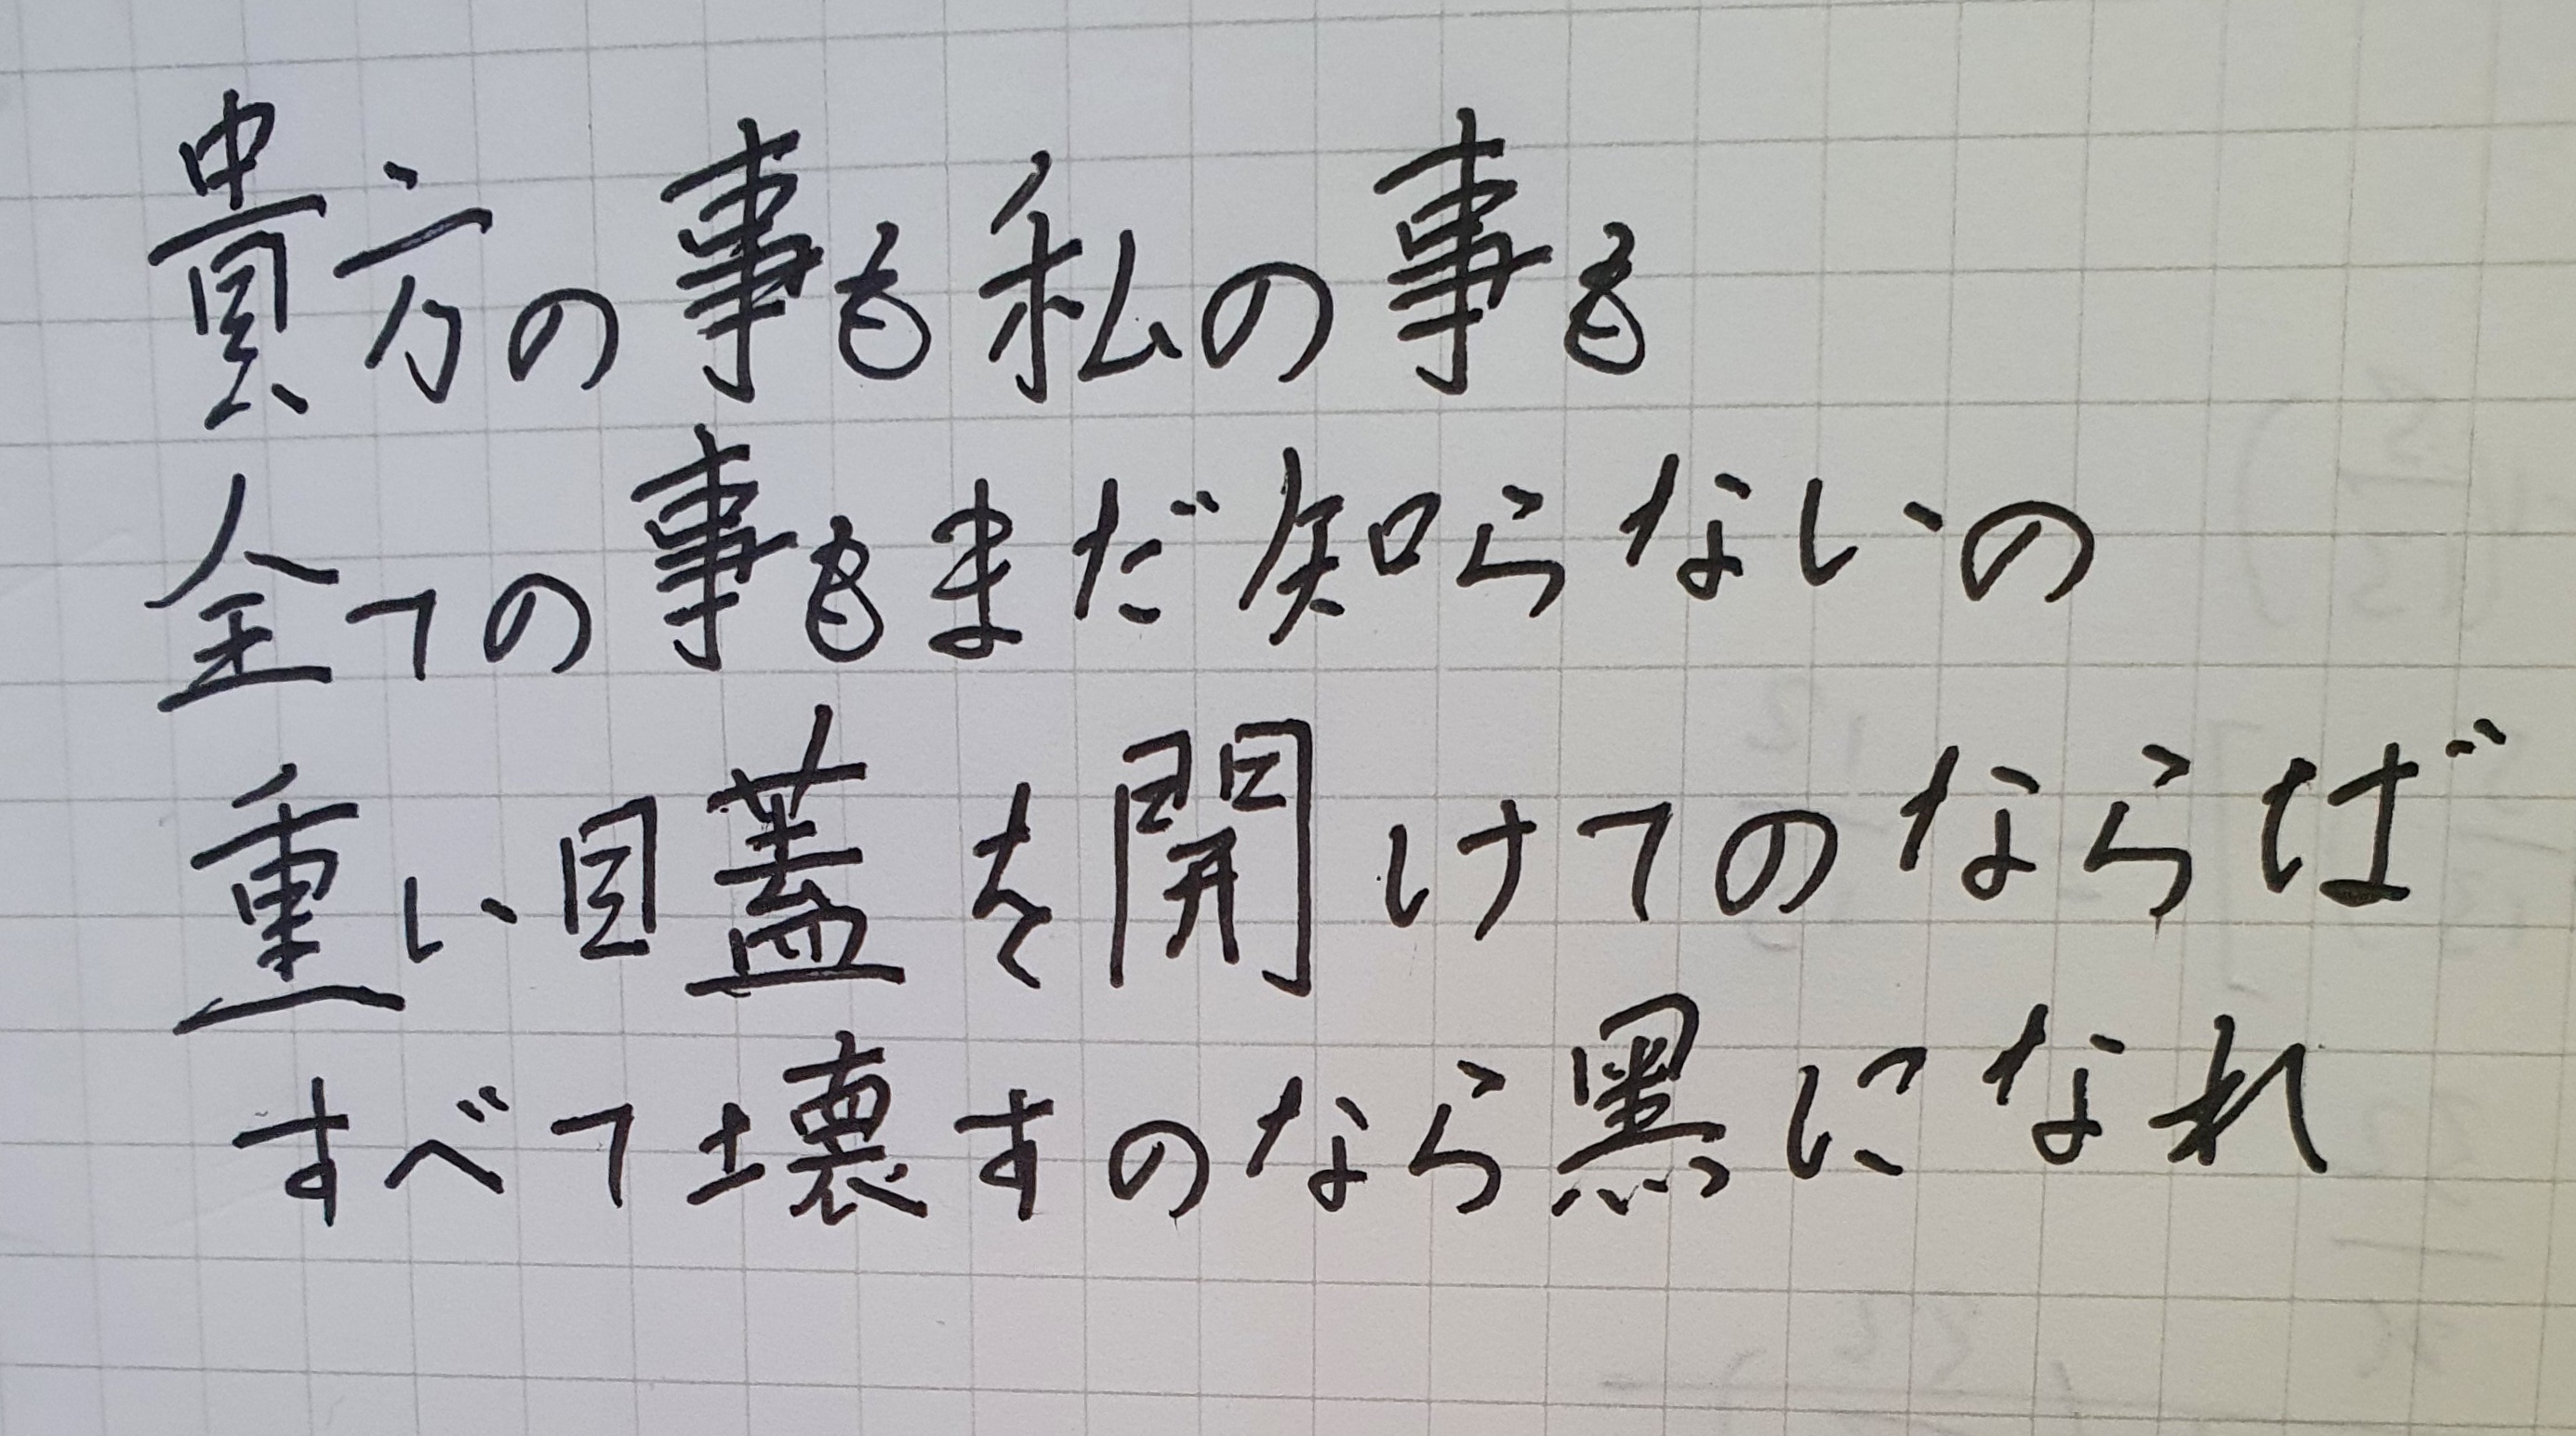 貴方の事も私の事も
全ての事もまだ知らないの
重い目蓋を開けてのならば
すべて壊すのなら黒になれ